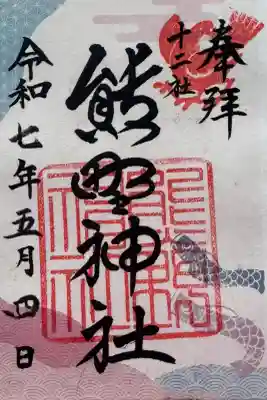 奉拝
十二社
熊野神社
令和七年五月四日